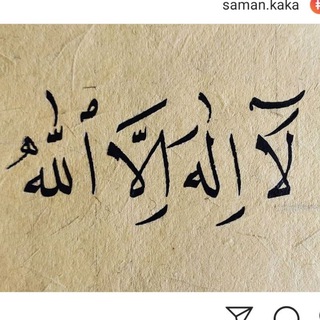 saman.kaka
لَآ اِلٰهَ اِلَّا ٱللّٰهُ